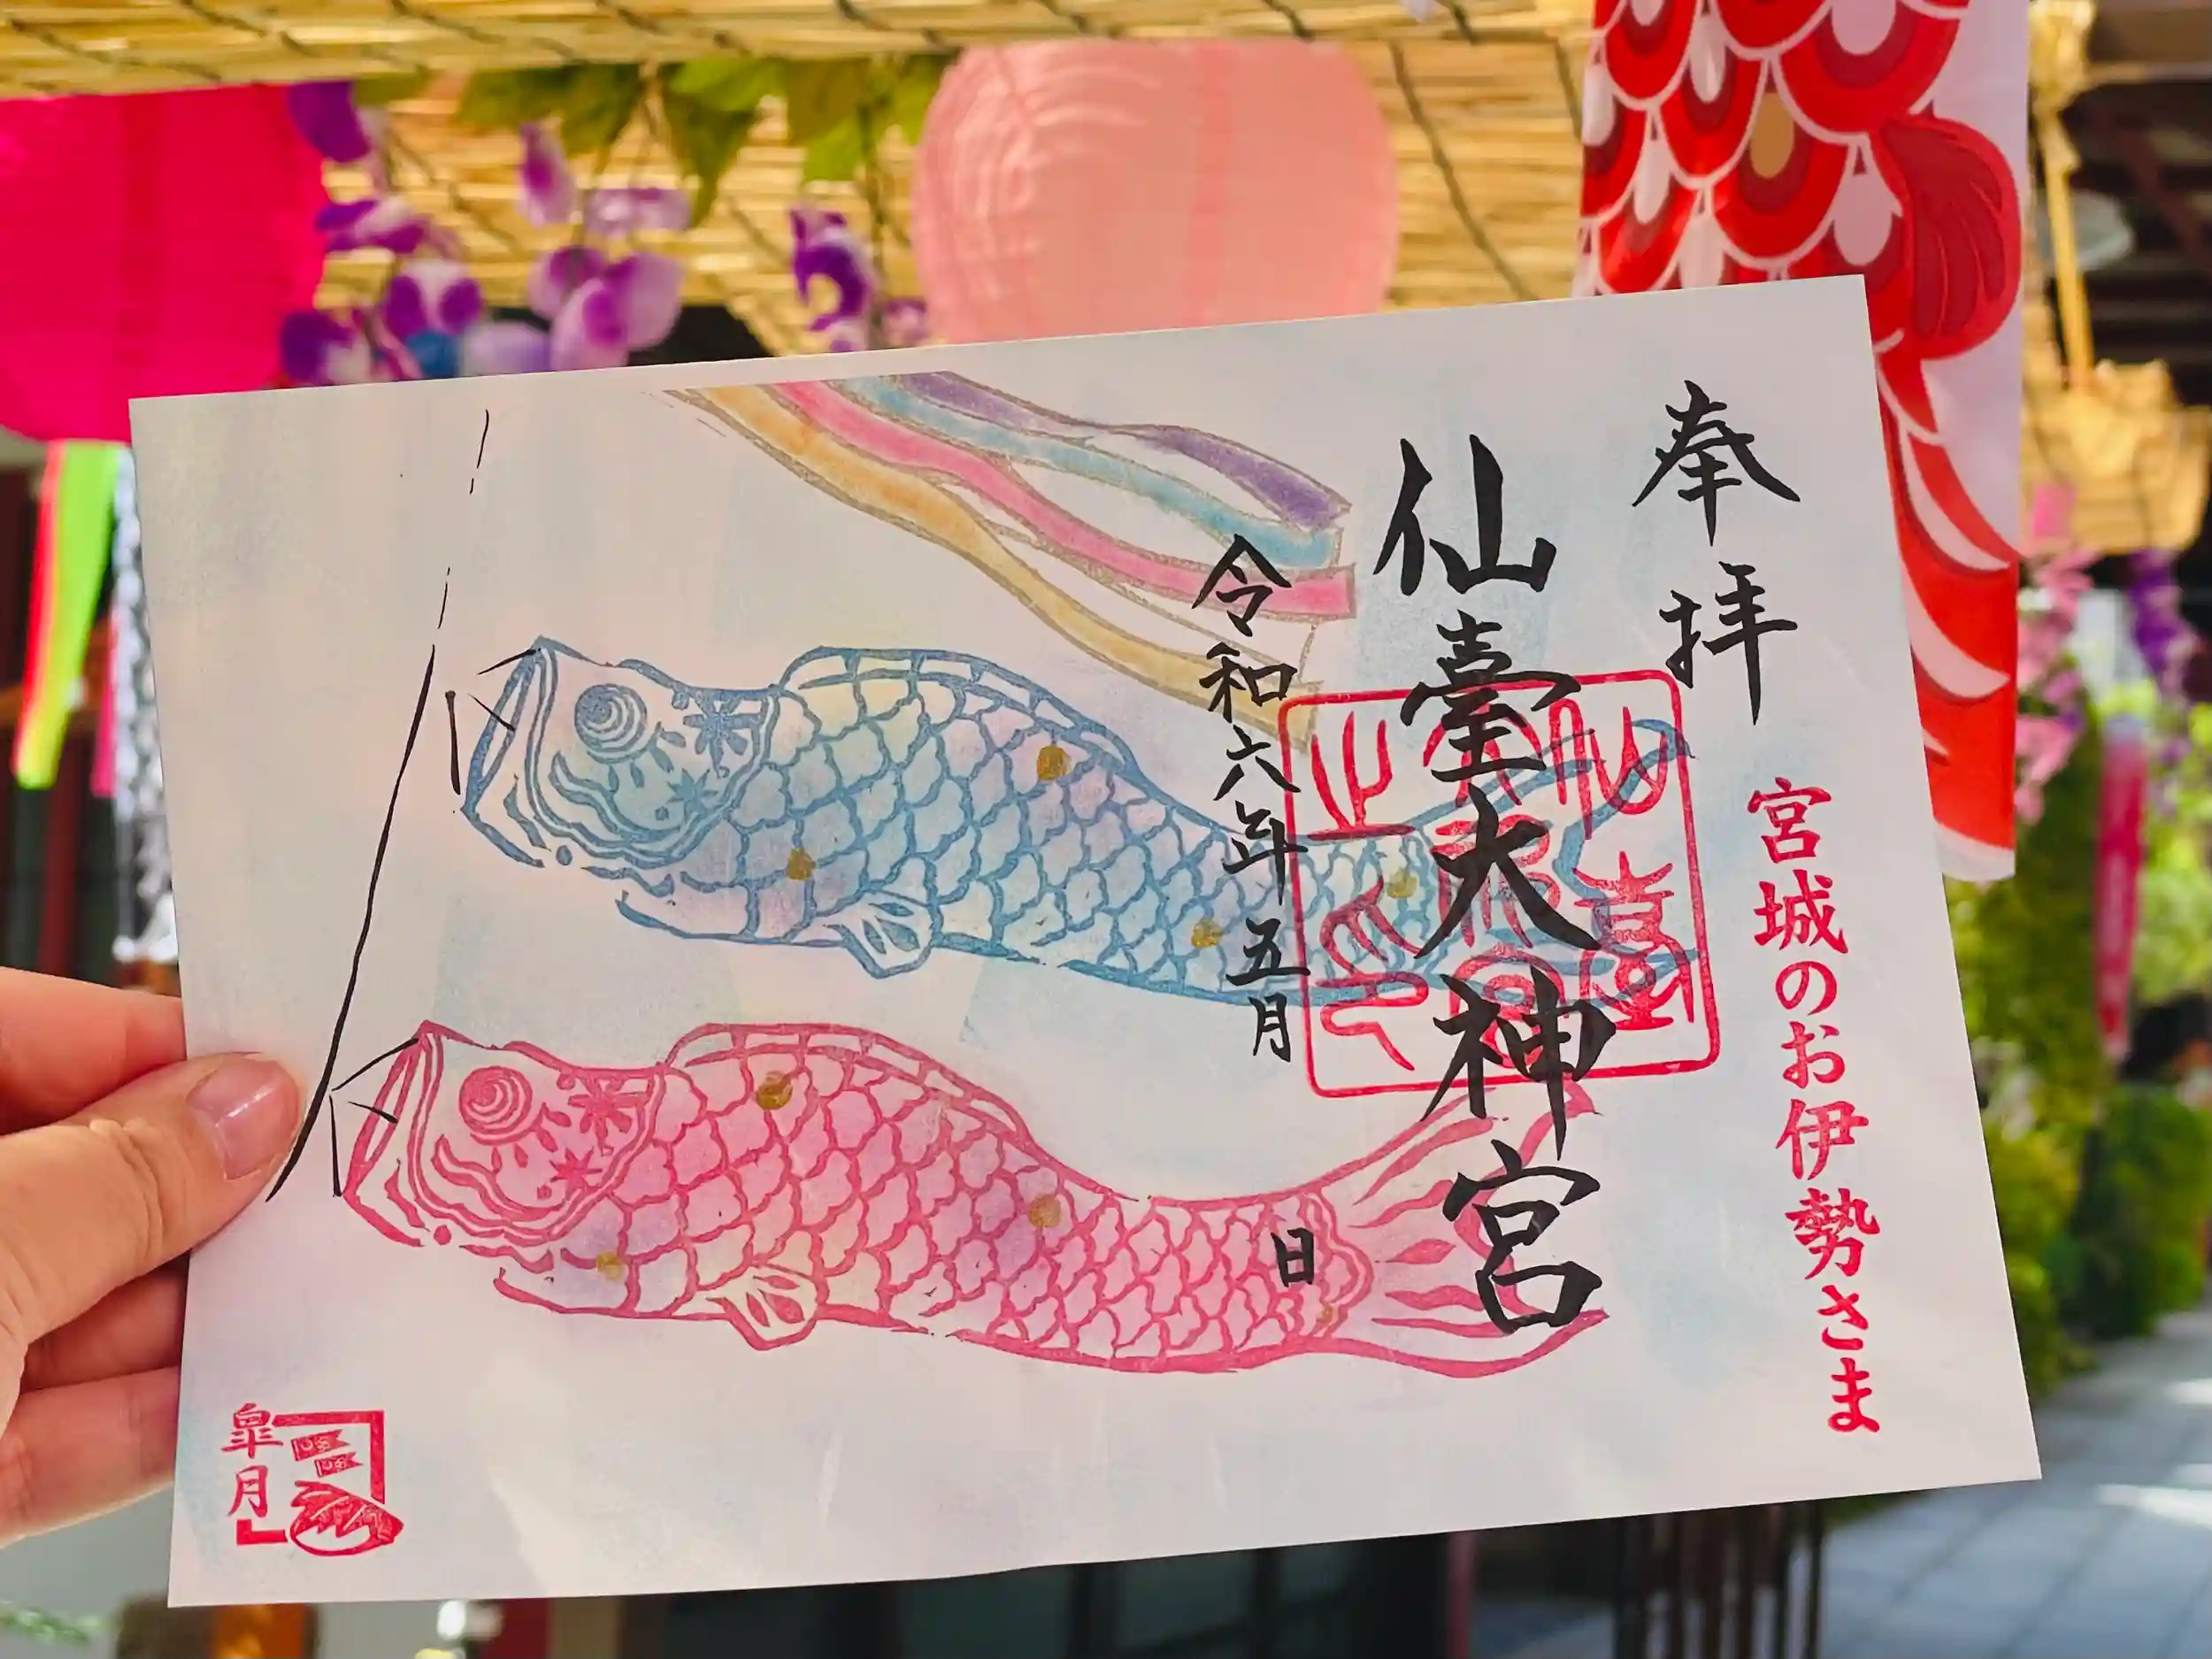 奉拝
宮城のお伊勢さま
仙臺大神宮
令和六年五月 日
皐月